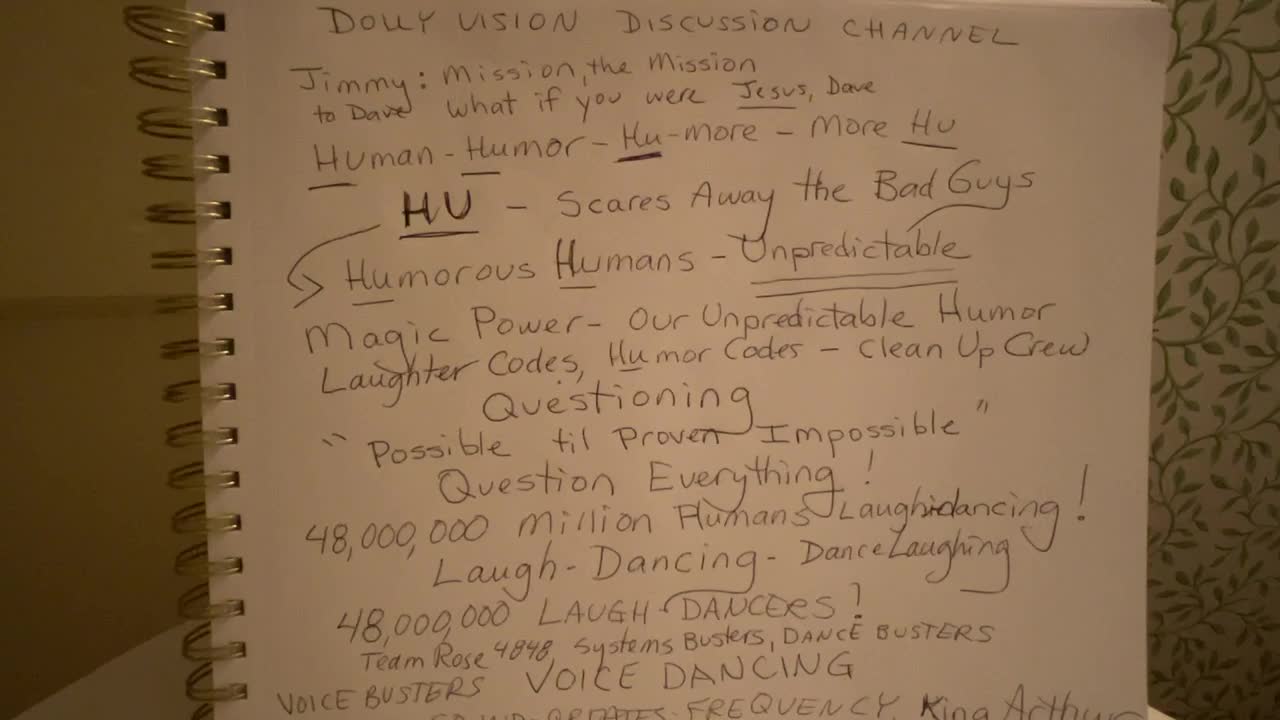 DOLLY VISION DISCUSSION CHANNEL
Jimmy: Mission, the Mission
to Dave what if you were Jesus, Dave
Human - Humor - Hu-more - More HU
HU - Scares Away the Bad Guys
Humorous Humans - Unpredictable
Magic Power - Our Unpredictable Humor
Laughter Codes, Humor Codes - Clean Up Crew
Questioning
"Possible til Proven Impossible"
Question Everything!
48,000,000 million Humans Laughidancing!
Laugh-Dancing - DanceLaughing
48,000,000 LAUGH-DANCERS!
Team Rose 4848 Systems Busters, DANCE BUSTERS
VOICE BUSTERS VOICE DANCING
SOUND CREATES FREQUENCY King Arthur